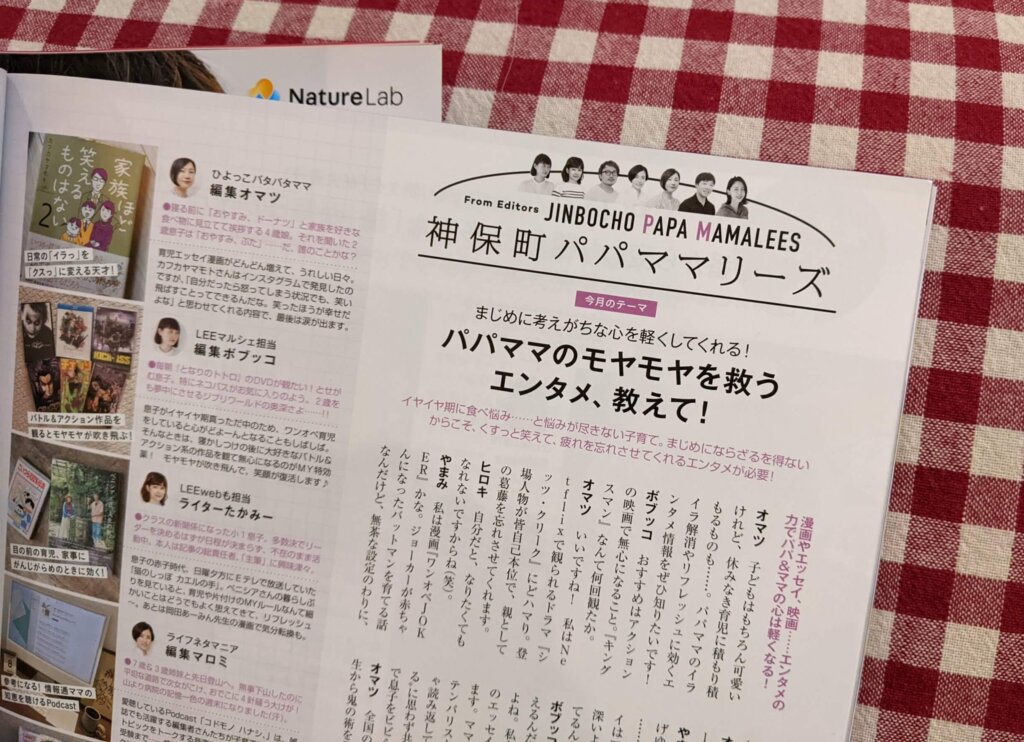 NatureLab
家族ほど
笑える
ものはない
2
日常の「イラっ」を
「クスっ」に変える天才!
バトル&アクション作品を
観るとモヤモヤが吹き飛ぶ!
目の前の育児、家事に
がんじがらめのときに効く!
参考になる!情報通ママの
知恵を聴けるPodcast
ひよっこバタバタママ
編集オマツ
●寝る前に「おやすみ、ドーナツ」と家族を好きな
食べ物に見立てて挨拶する4歳娘。それを聞いた2
歳息子は「おやすみ、ぶた」……だ、誰のことかな?
育児エッセイ漫画がどんどん増えて、うれしい日々。
カフカヤマモトさんはインスタグラムで発見したの
ですが、「自分だったら怒ってしまう状況でも、笑い
飛ばすことってできるんだな。笑ったほうが幸せだ
よな」と思わせてくれる内容で、最後は涙が出ます。
LEEマルシェ担当
編集ボブッコ
●毎朝『となりのトトロ』のDVDが観たい!とせが
む息子。特にネコバスがお気に入りのよう。2歳を
も夢中にさせるジブリワールドの奥深さよ……!!
息子がイヤイヤ期真っただ中のため、ワンオペ育児
をしていると心がどよーんとなることもしばしば。
そんなときは、寝かしつけの後に大好きなバトル&
アクション系の作品を観て無心になるのがMY特効
薬! モヤモヤが吹き飛んで、笑顔が復活します♪
LEEwebも担当
ライターたかみー
●クラスの新聞係になった小1息子。多数決でリー
ダーを決めるはずが日程が決まらず、不在のまま活
動中。本人は記事の総責任者「主筆」に興味津々。
息子の赤子時代、日曜夕方にEテレで放送していた
『猫のしっぽ カエルの手』。ベニシアさんの暮らしぶ
りを見ていると、育児や片付けのMYルールなんて細
かいことはどうでもよく思えてきて、リフレッシュ
〜。あとは岡田あーみん先生の漫画で気分転換も。
ライフネタマニア
編集マロミ
●7歳&3歳姉妹と先日登山へ。無事下山したのに
平坦な道路で次女がこけ、おでこに4針縫う大けが!
山より病院の記憶一色の週末になりました(汗)。
愛聴しているPodcast「コドモノ ハナシ。」は、雑
誌でも活躍する編集者さんたちが子育て
トピックをトークする
受験まで…
From Editors JINBOCHO PAPA MAMALEES
神保町パパママリーズ
今月のテーマ
まじめに考えがちな心を軽くしてくれる!
パパママのモヤモヤを救う
エンタメ、教えて!
イヤイヤ期に食べ悩み……と悩みが尽きない子育て。まじめにならざるを得ない
からこそ、くすっと笑えて、疲れを忘れさせてくれるエンタメが必要!
漫画やエッセイ、映画……エンタメの
力でパパ&ママの心は軽くなる!
オマツ 子どもはもちろん可愛い
けれど、休みなき育児に積もり積
もるものも……。パパママのイラ
イラ解消やリフレッシュに効くエ
ンタメ情報をぜひ知りたいです!
ボブッコ おすすめはアクション
の映画で無心になること。『キング
スマン』なんて何回観たか。
オマツ いいですね! 私はNe
tflixで観られるドラマ『シ
ッツ・クリーク』にどハマり。登
場人物が皆自己本位で、親として
の葛藤を忘れさせてくれます。
ヒロキ 自分だと、なりたくても
なれないですからね(笑)。
やまみ 私は漫画『ワンオペJOK
ER』かな。ジョーカーが赤ちゃ
んになったバットマンを育てる話
なんだけど、無茶な設定のわりに、